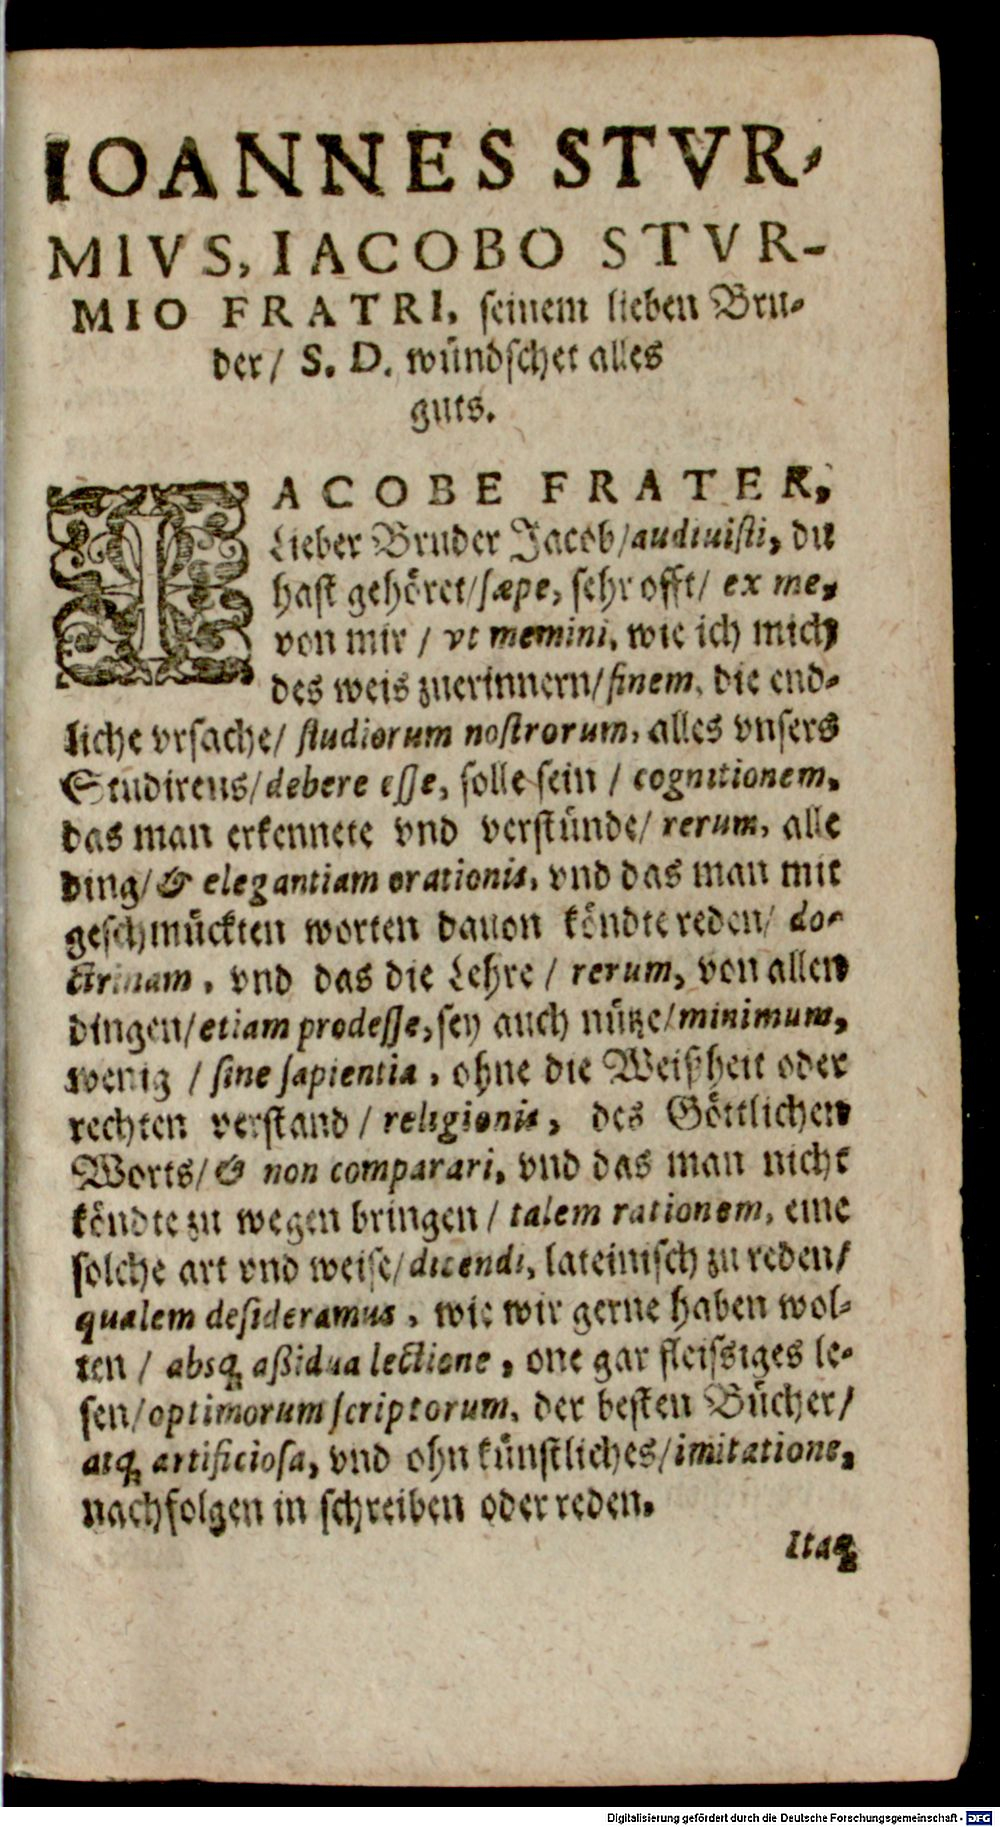 IOANNES STVR-
MIVS, IACOBO STVR-
MIO FRATRI, seinem lieben Bru-
der/ S. D. wündschet alles
guts.
IACOBE FRATER,
Lieber Bruder Jacob/audiuisti, du
hast gehöret/sæpe, sehr offt/ ex me,
von mir / vt memini, wie ich mich
des weis zuerinnern/finem, die end-
liche vrsache/ studiorum nostrorum, alles vnsers
Studirens/debere esse, solle sein / cognitionem,
das man erkennete vnd verstünde/ rerum, alle
ding/& elegantiam orationis, vnd das man mit
geschmückten worten dauon köndte reden/ do-
ctrinam, vnd das die Lehre / rerum, von allen
dingen/etiam prodesse, sey auch nütze/minimum,
wenig / sine sapientia, ohne die Weißheit oder
rechten verstand / religionis, des Göttlichen
Worts/& non comparari, vnd das man nicht
köndte zu wegen bringen / talem rationem, eine
solche art vnd weise/dicendi, lateinisch zu reden/
qualem desideramus, wie wir gerne haben wol-
ten / absq; aßidua lectione, one gar fleissiges le-
sen/optimorum scriptorum, der besten Bücher/
atq; artificiosa, vnd ohn künstliches/imitatione,
nachfolgen in schreiben oder reden.
Itaq;
Digitalisierung gefördert durch die Deutsche Forschungsgemeinschaft - DFG